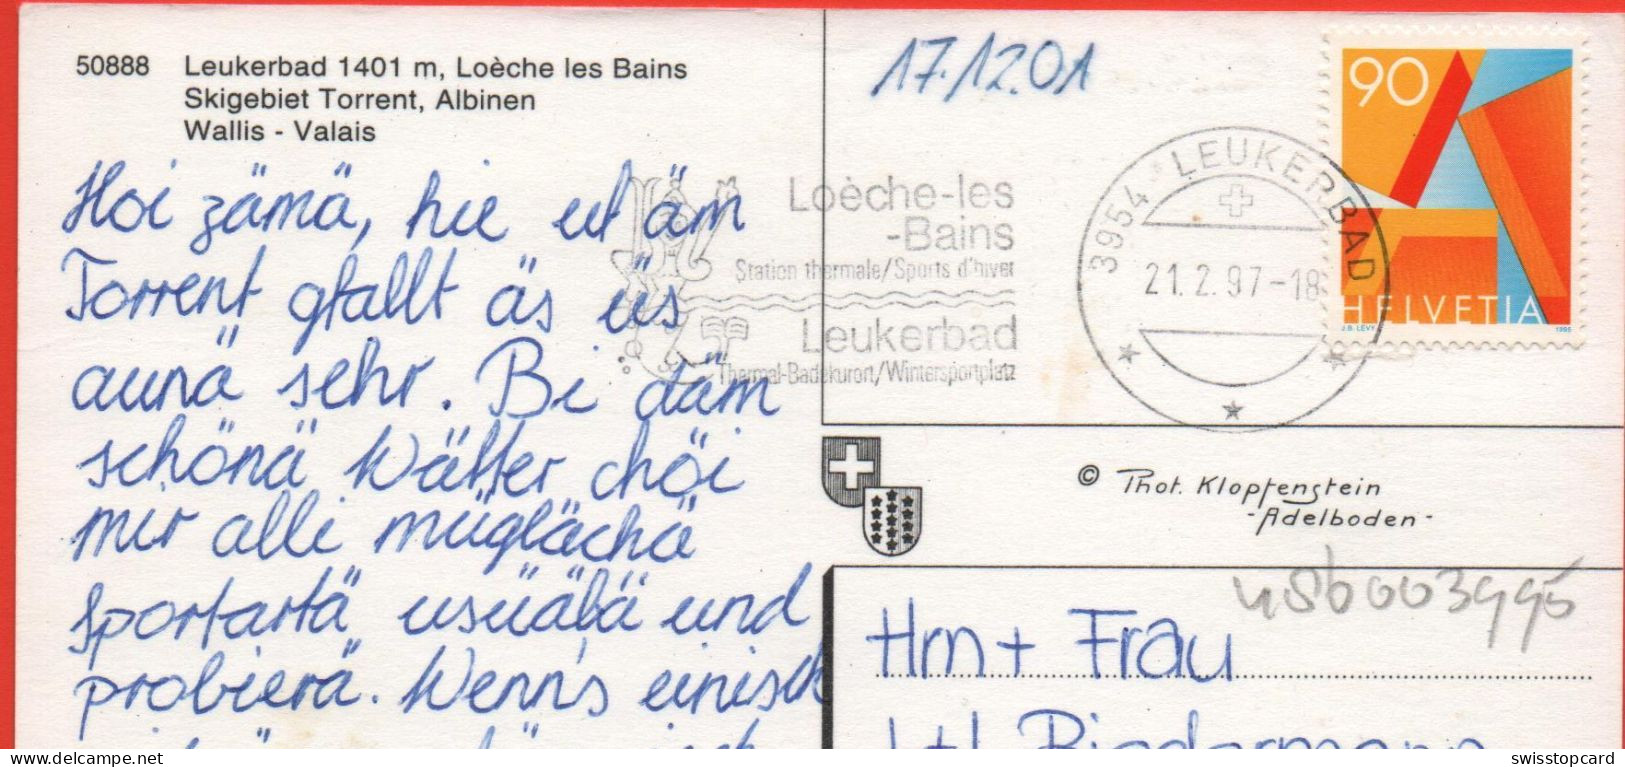 50888 Leukerbad 1401 m, Loèche les Bains
Skigebiet Torrent, Albinen
Wallis - Valais
Hoi zämä, hie uf äm
Torrent gfallt äs üs
aunä sehr. Bi däm
schönä Wätter chöi
mir alli müglächä
Sportartä usüäbä und
probierä. Wenn's einisch
17.12.01
Loèche-les
-Bains
Station thermale/Sports d'hiver
Leukerbad
Thermal-Badekurort/Wintersportplatz
3954 LEUKERBAD
21.2.97-18
90
A
HELVETIA
J.B. LEVY 1995
© Phot. Klopfenstein
- Adelboden -
Hrn + Frau
Biedermann
swisstopcard